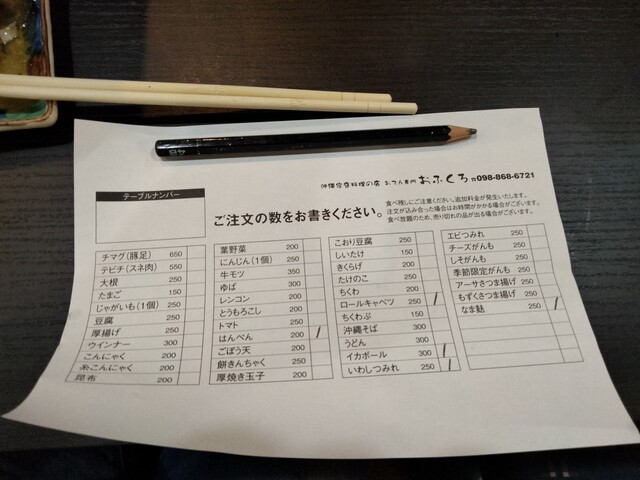 沖縄家庭料理の店 おでん専門 おふくろ ☎098-868-6721
テーブルナンバー
ご注文の数をお書きください。
食べ残しにご注意ください。追加料金が発生いたします。
注文が込み合った場合はお時間がかかる場合がございます。
食べ放題のため、売り切れの品が出る場合がございます。
チマグ(豚足) 650
テビチ(スネ肉) 550
大根 250
たまご 150
じゃがいも(1個) 250
豆腐 250
厚揚げ 250
ウインナー 300
こんにゃく 200
糸こんにゃく 200
昆布 200
葉野菜 200
にんじん(1個) 250
牛モツ 350
ゆば 300
レンコン 200
とうもろこし 200
トマト 250
はんぺん 200 /
ごぼう天 200
餅きんちゃく 250
厚焼き玉子 200
こおり豆腐 250
しいたけ 150
きくらげ 200
たけのこ 250
ちくわ 200
ロールキャベツ 250 /
ちくわぶ 150
沖縄そば 300
うどん 300
イカボール 300 /
いわしつみれ 250 /
エビつみれ 250
チーズがんも 250
しそがんも 250
季節限定がんも 250
アーサさつま揚げ 250
もずくさつま揚げ 250
なま麩 250 /